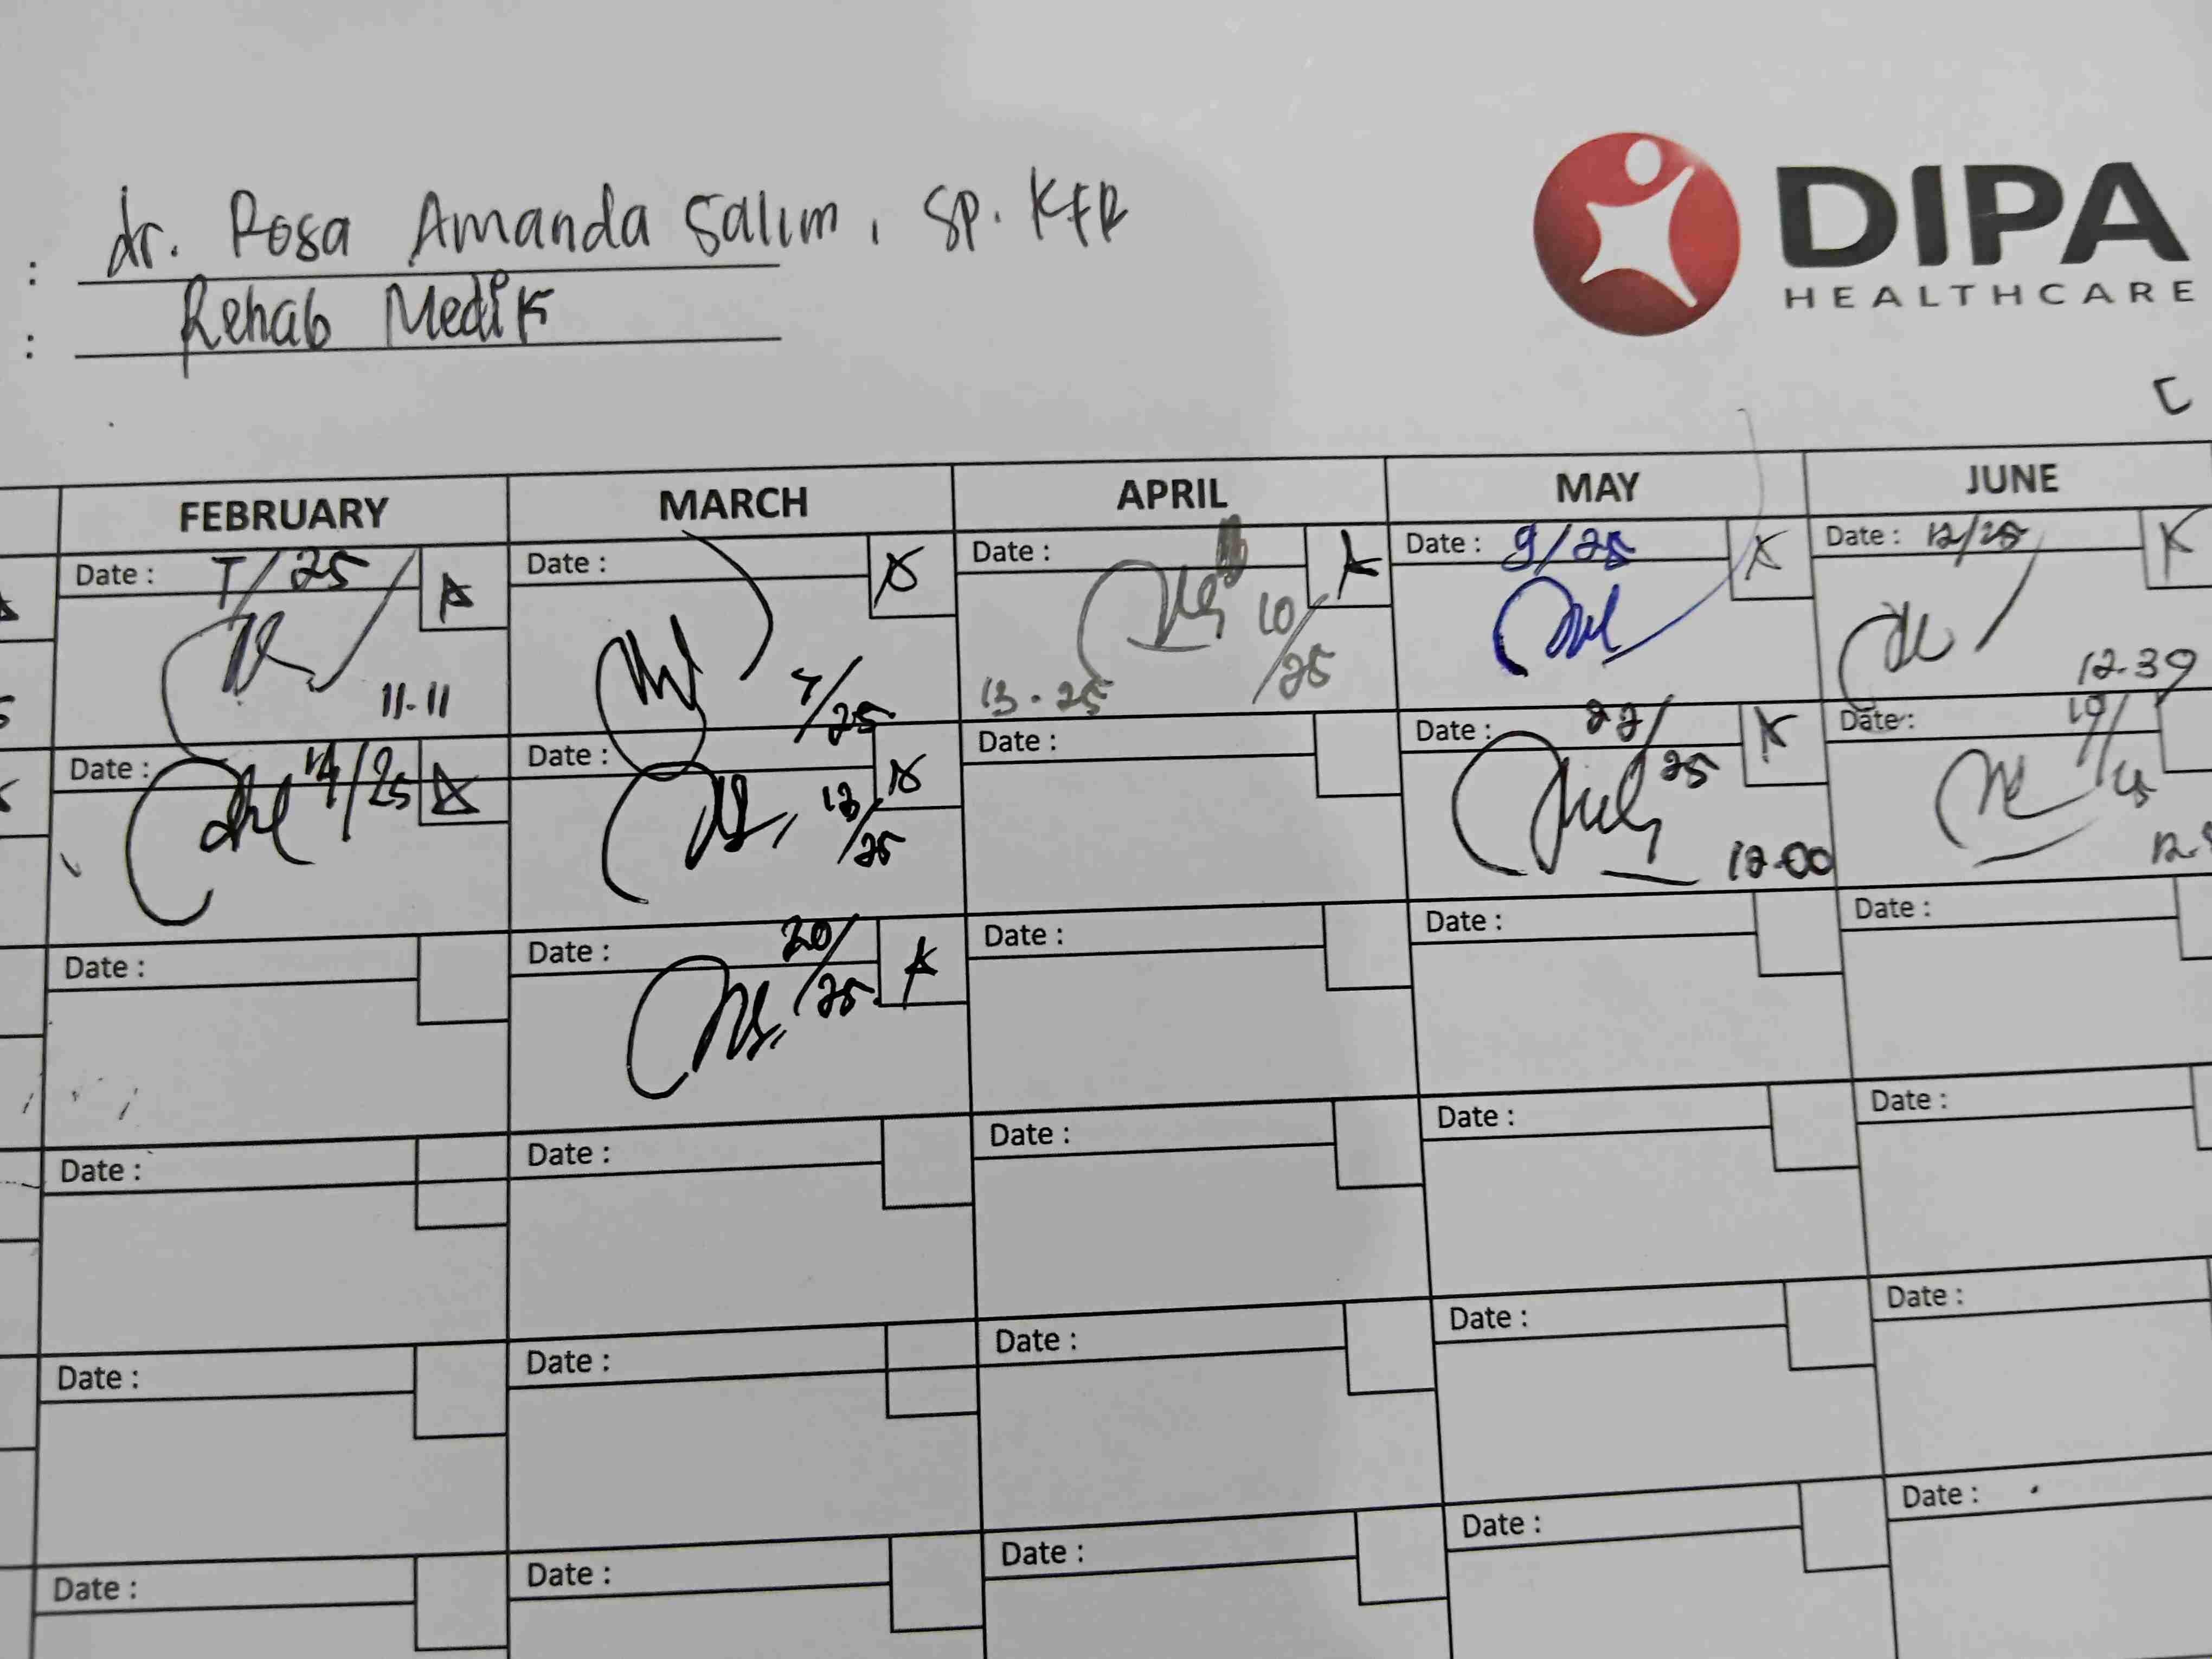 dr. Rosa Amanda Salim, Sp. KFR
Rehab Medik
DIPA
HEALTHCARE
FEBRUARY MARCH APRIL MAY JUNE
Date : 7/25 Date : Date : Date : 9/25 Date : 12/25
11.11 7/25 13.25 10/25 12.39
Date : 14/25 Date : 13/25 Date : Date : 22/25 Date : 19/25
12.00
Date : Date : 20/25 Date : Date : Date :
Date : Date : Date : Date : Date :
Date : Date : Date : Date : Date :
Date : Date : Date : Date : Date :